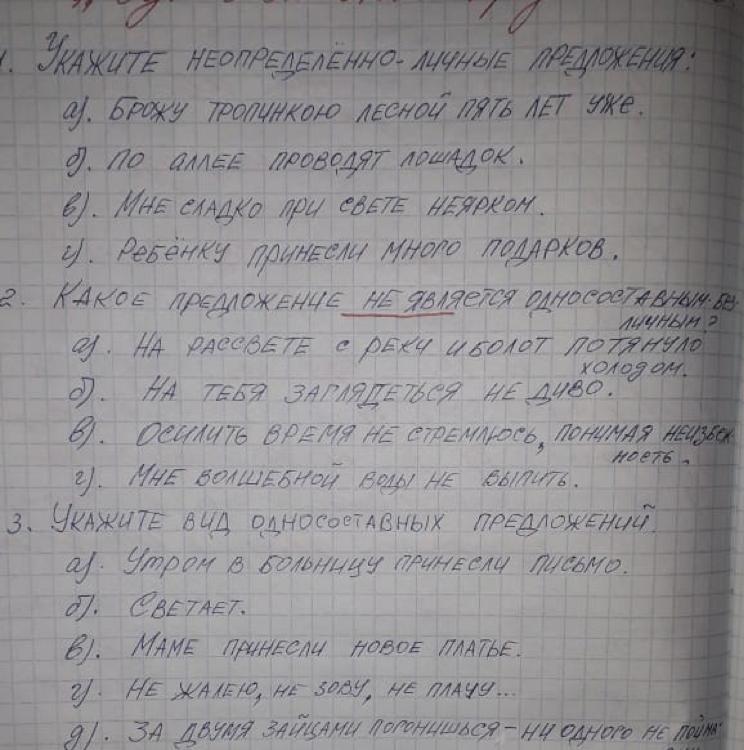 1. Укажите неопределённо-личные предложения:
а). Брожу тропинкою лесной пять лет уже.
б). По аллее проводят лошадок.
в). Мне сладко при свете неярком.
г). Ребёнку принесли много подарков.
2. Какое предложение не является односоставным без-
личным?
а). На рассвете с реки и болот потянуло
холодом.
б). На тебя заглядеться не диво.
в). Осилить время не стремлюсь, понимая неизбеж-
ность.
г). Мне волшебной воды не выпить.
3. Укажите вид односоставных предложений.
а). Утром в больницу принесли письмо.
б). Светает.
в). Маме принесли новое платье.
г). Не жалею, не зову, не плачу...
д). За двумя зайцами погонишься – ни одного не пойма-